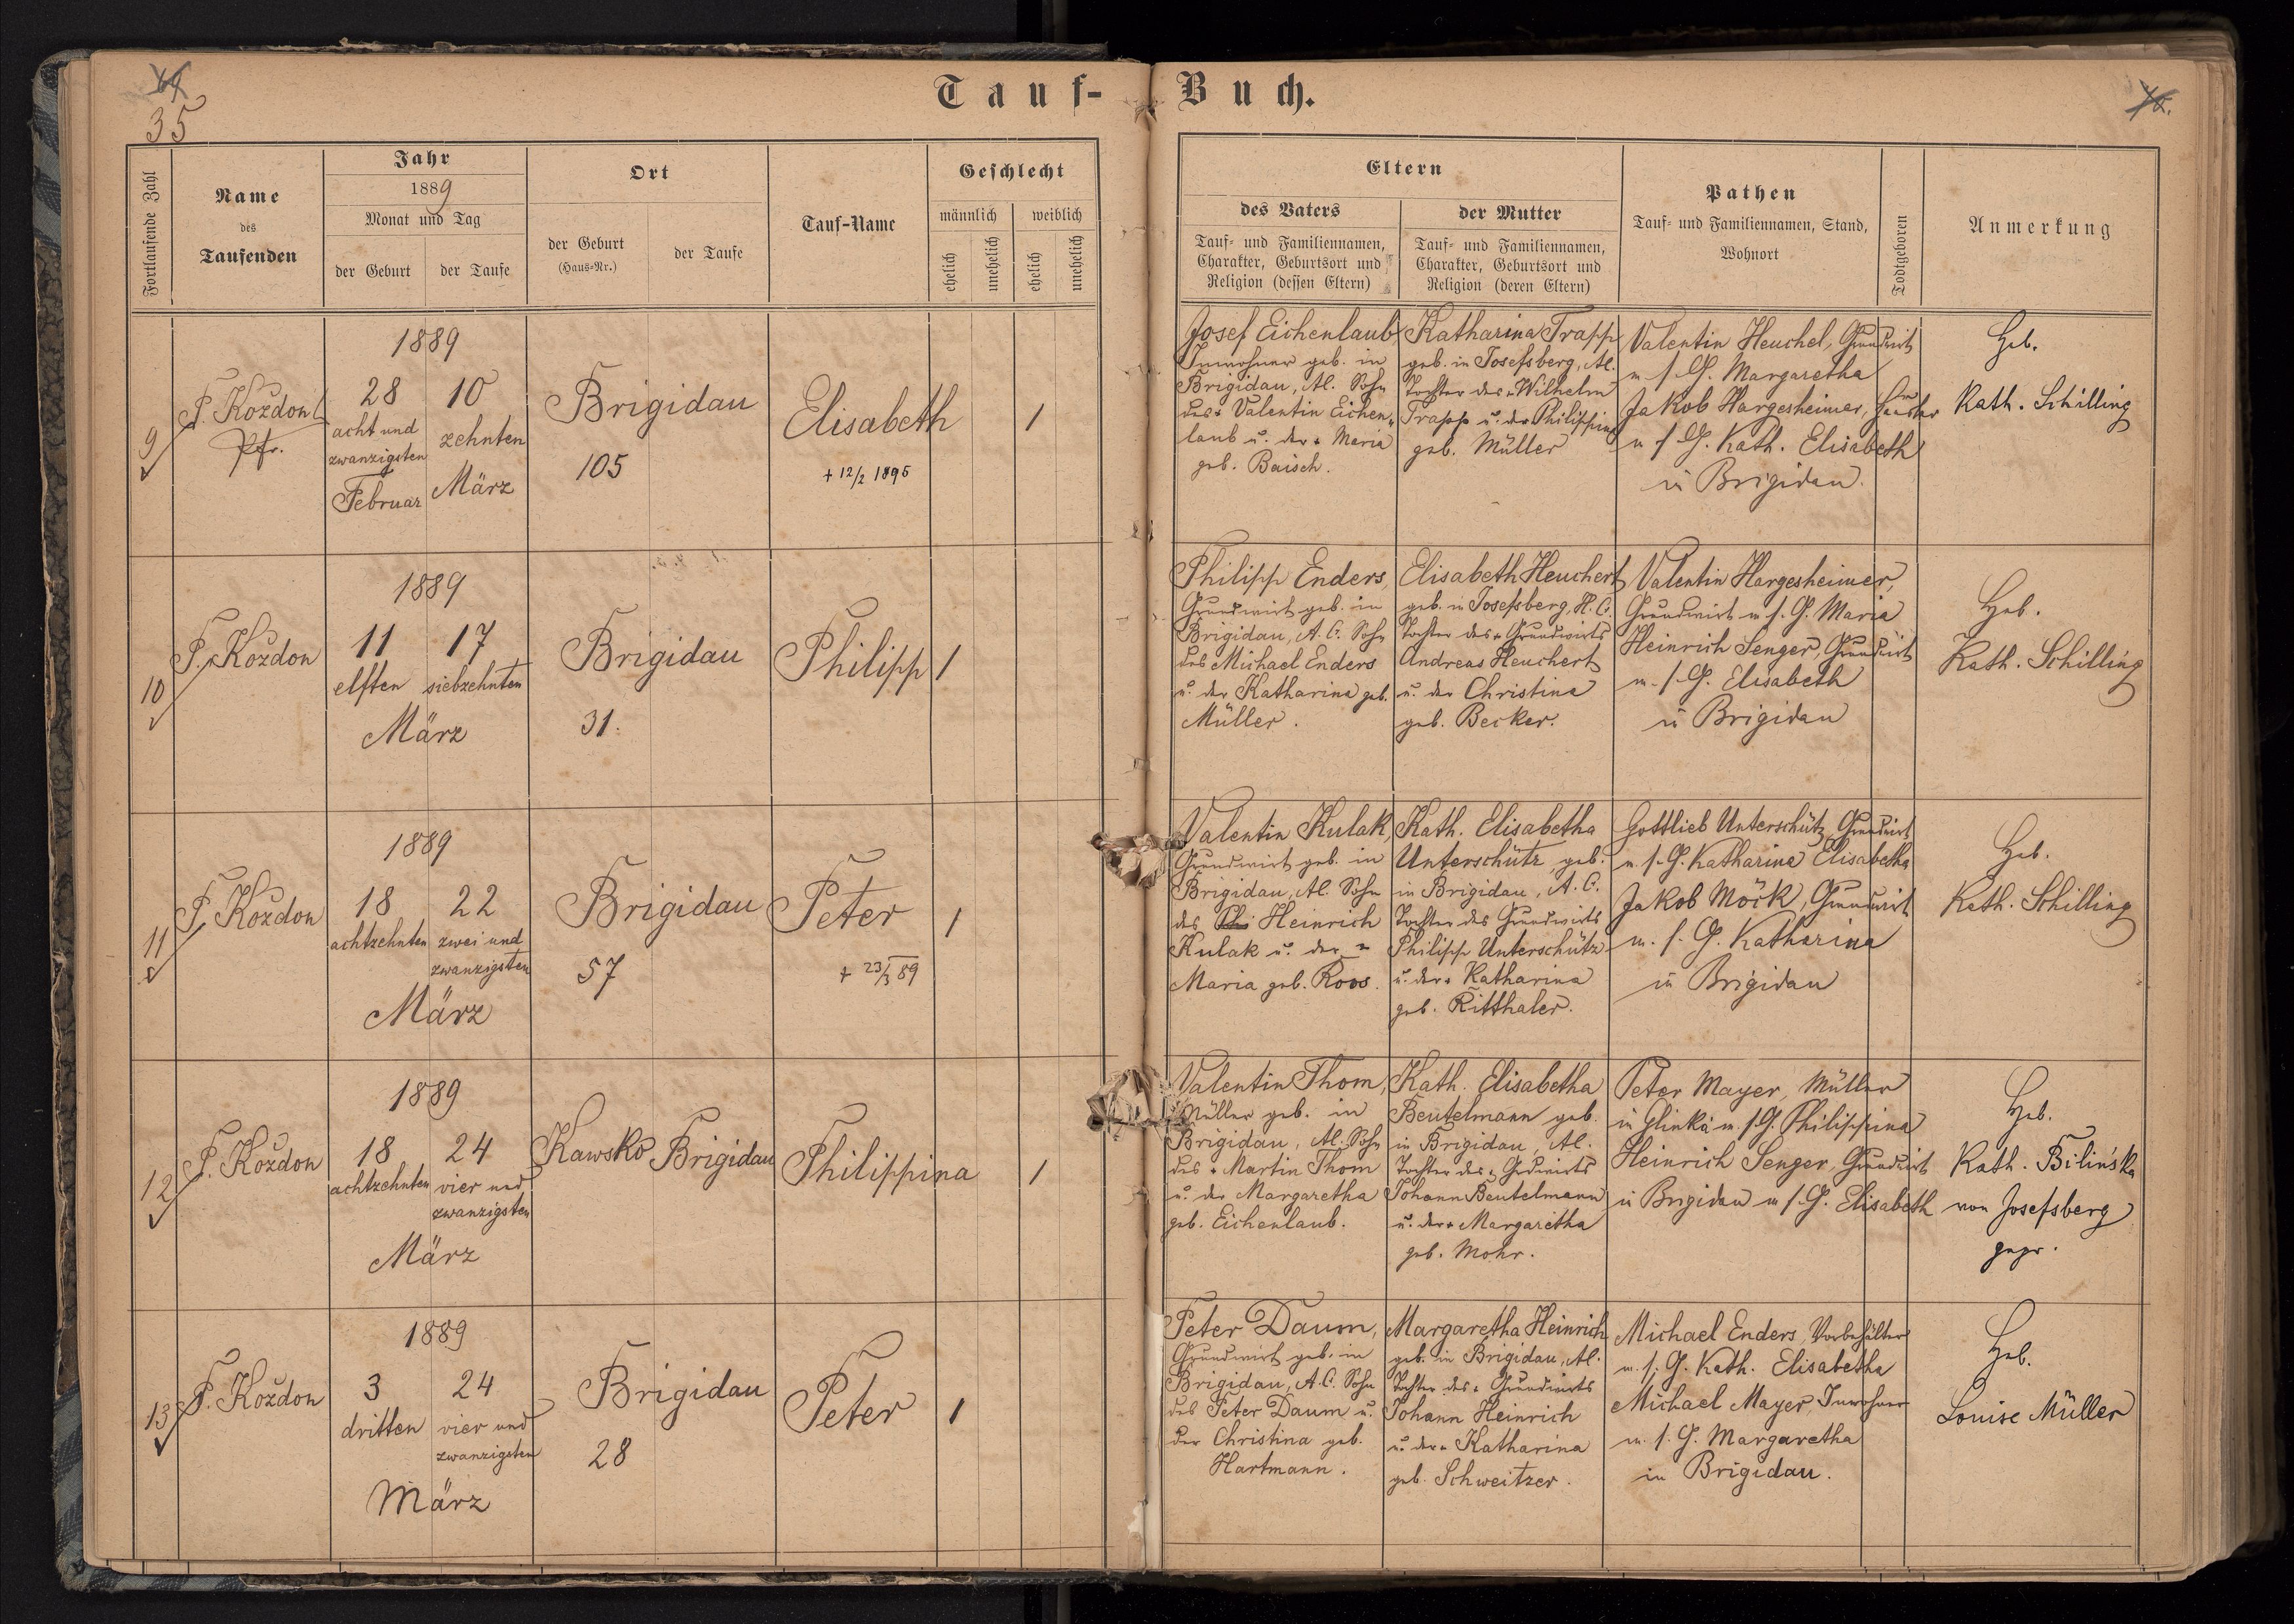 35
Tauf-Buch.
Fortlaufende Zahl
Name
des
Taufenden
Jahr
1889
Monat und Tag
der Geburt
der Taufe
Ort
der Geburt
(Haus-Nr.)
der Taufe
Tauf-Name
Geschlecht
männlich
weiblich
ehelich
unehelich
ehelich
unehelich
Eltern
des Vaters
Tauf- und Familiennamen,
Charakter, Geburtsort und
Religion (dessen Eltern)
der Mutter
Tauf- und Familiennamen,
Charakter, Geburtsort und
Religion (deren Eltern)
Pathen
Tauf- und Familiennamen, Stand,
Wohnort
Todtgeboren
Anmerkung
9
F. Kozdon
Pfr.
1889
28
acht und
zwanzigsten
Februar
10
zehnten
März
Brigidau
105
Elisabeth
+ 12/2 1895
1
Josef Eichenlaub
Inwohner geb. in
Brigidau, Al. Sohn
des + Valentin Eichen-
laub u. der + Maria
geb. Baisch.
Katharina Trapp
geb. in Josefsberg, Al.
Tochter des + Wilhelm
Trapp u. der Philippina
geb. Müller
Valentin Heuchel, Grundwirt
m. s. G. Margaretha
Jakob Hargesheimer,
m. s. G. Kath. Elisabeth
in Brigidau.
Heb.
Kath. Schilling
10
F. Kozdon
1889
11
elften
17
siebzehnten
März
Brigidau
31.
Philipp
1
Philipp Enders,
Grundwirt geb. in
Brigidau, A. C. Sohn
des Michael Enders
u. der Katharina geb.
Müller.
Elisabeth Heuchert
geb. in Josefsberg, H. C.
Tochter des + Grundwirts
Andreas Heuchert
u. der Christina
geb. Becker.
Valentin Hargesheimer,
Grundwirt m. s. G. Maria
Heinrich Senger, Grundwirt
m. s. G. Elisabeth
in Brigidau
Heb.
Kath. Schilling
11
F. Kozdon
1889
18
achtzehnten
22
zwei und
zwanzigsten
März
Brigidau
57
Peter
+ 23/3 89
1
Valentin Kulak,
Grundwirt geb. in
Brigidau, Al. Sohn
des Heinrich
Kulak u. der +
Maria geb. Roos.
Kath. Elisabetha
Unterschütz, geb.
in Brigidau, A. C.
Tochter des Grundwirts
Philipp Unterschütz
u. der + Katharina
geb. Ritthaler.
Gottlieb Unterschütz, Grundwirt
m. s. G. Katharina Elisabetha
Jakob Möck, Grundwirt
m. s. G. Katharina
in Brigidau
Heb.
Kath. Schilling
12
F. Kozdon
1889
18
achtzehnten
24
vier und
zwanzigsten
März
Kawsko
Brigidau
Philippina
1
Valentin Thom,
Müller geb. in
Brigidau, Al. Sohn
des + Martin Thom
u. der Margaretha
geb. Eichenlaub.
Kath. Elisabetha
Beutelmann geb.
in Brigidau, Al.
Tochter des + Grdwirts
Johann Beutelmann
u. der + Margaretha
geb. Mohr.
Peter Mayer, Müller
in Glinka m. s. G. Philippina
Heinrich Senger, Grundwirt
in Brigidau m. s. G. Elisabeth
Heb.
Kath. Bilińska
von Josefsberg
gepr.
13
F. Kozdon
1889
3
dritten
24
vier und
zwanzigsten
März
Brigidau
28
Peter
1
Peter Daum,
Grundwirt geb. in
Brigidau, A. C. Sohn
des Peter Daum u.
der Christina geb.
Hartmann.
Margaretha Heinrich
geb. in Brigidau, Al.
Tochter des + Grundwirts
Johann Heinrich
u. der + Katharina
geb. Schweitzer.
Michael Enders, Vorbehälter
m. s. G. Kath. Elisabetha
Michael Mayer, Inwohner
m. s. G. Margaretha
in Brigidau.
Heb.
Louise Müller